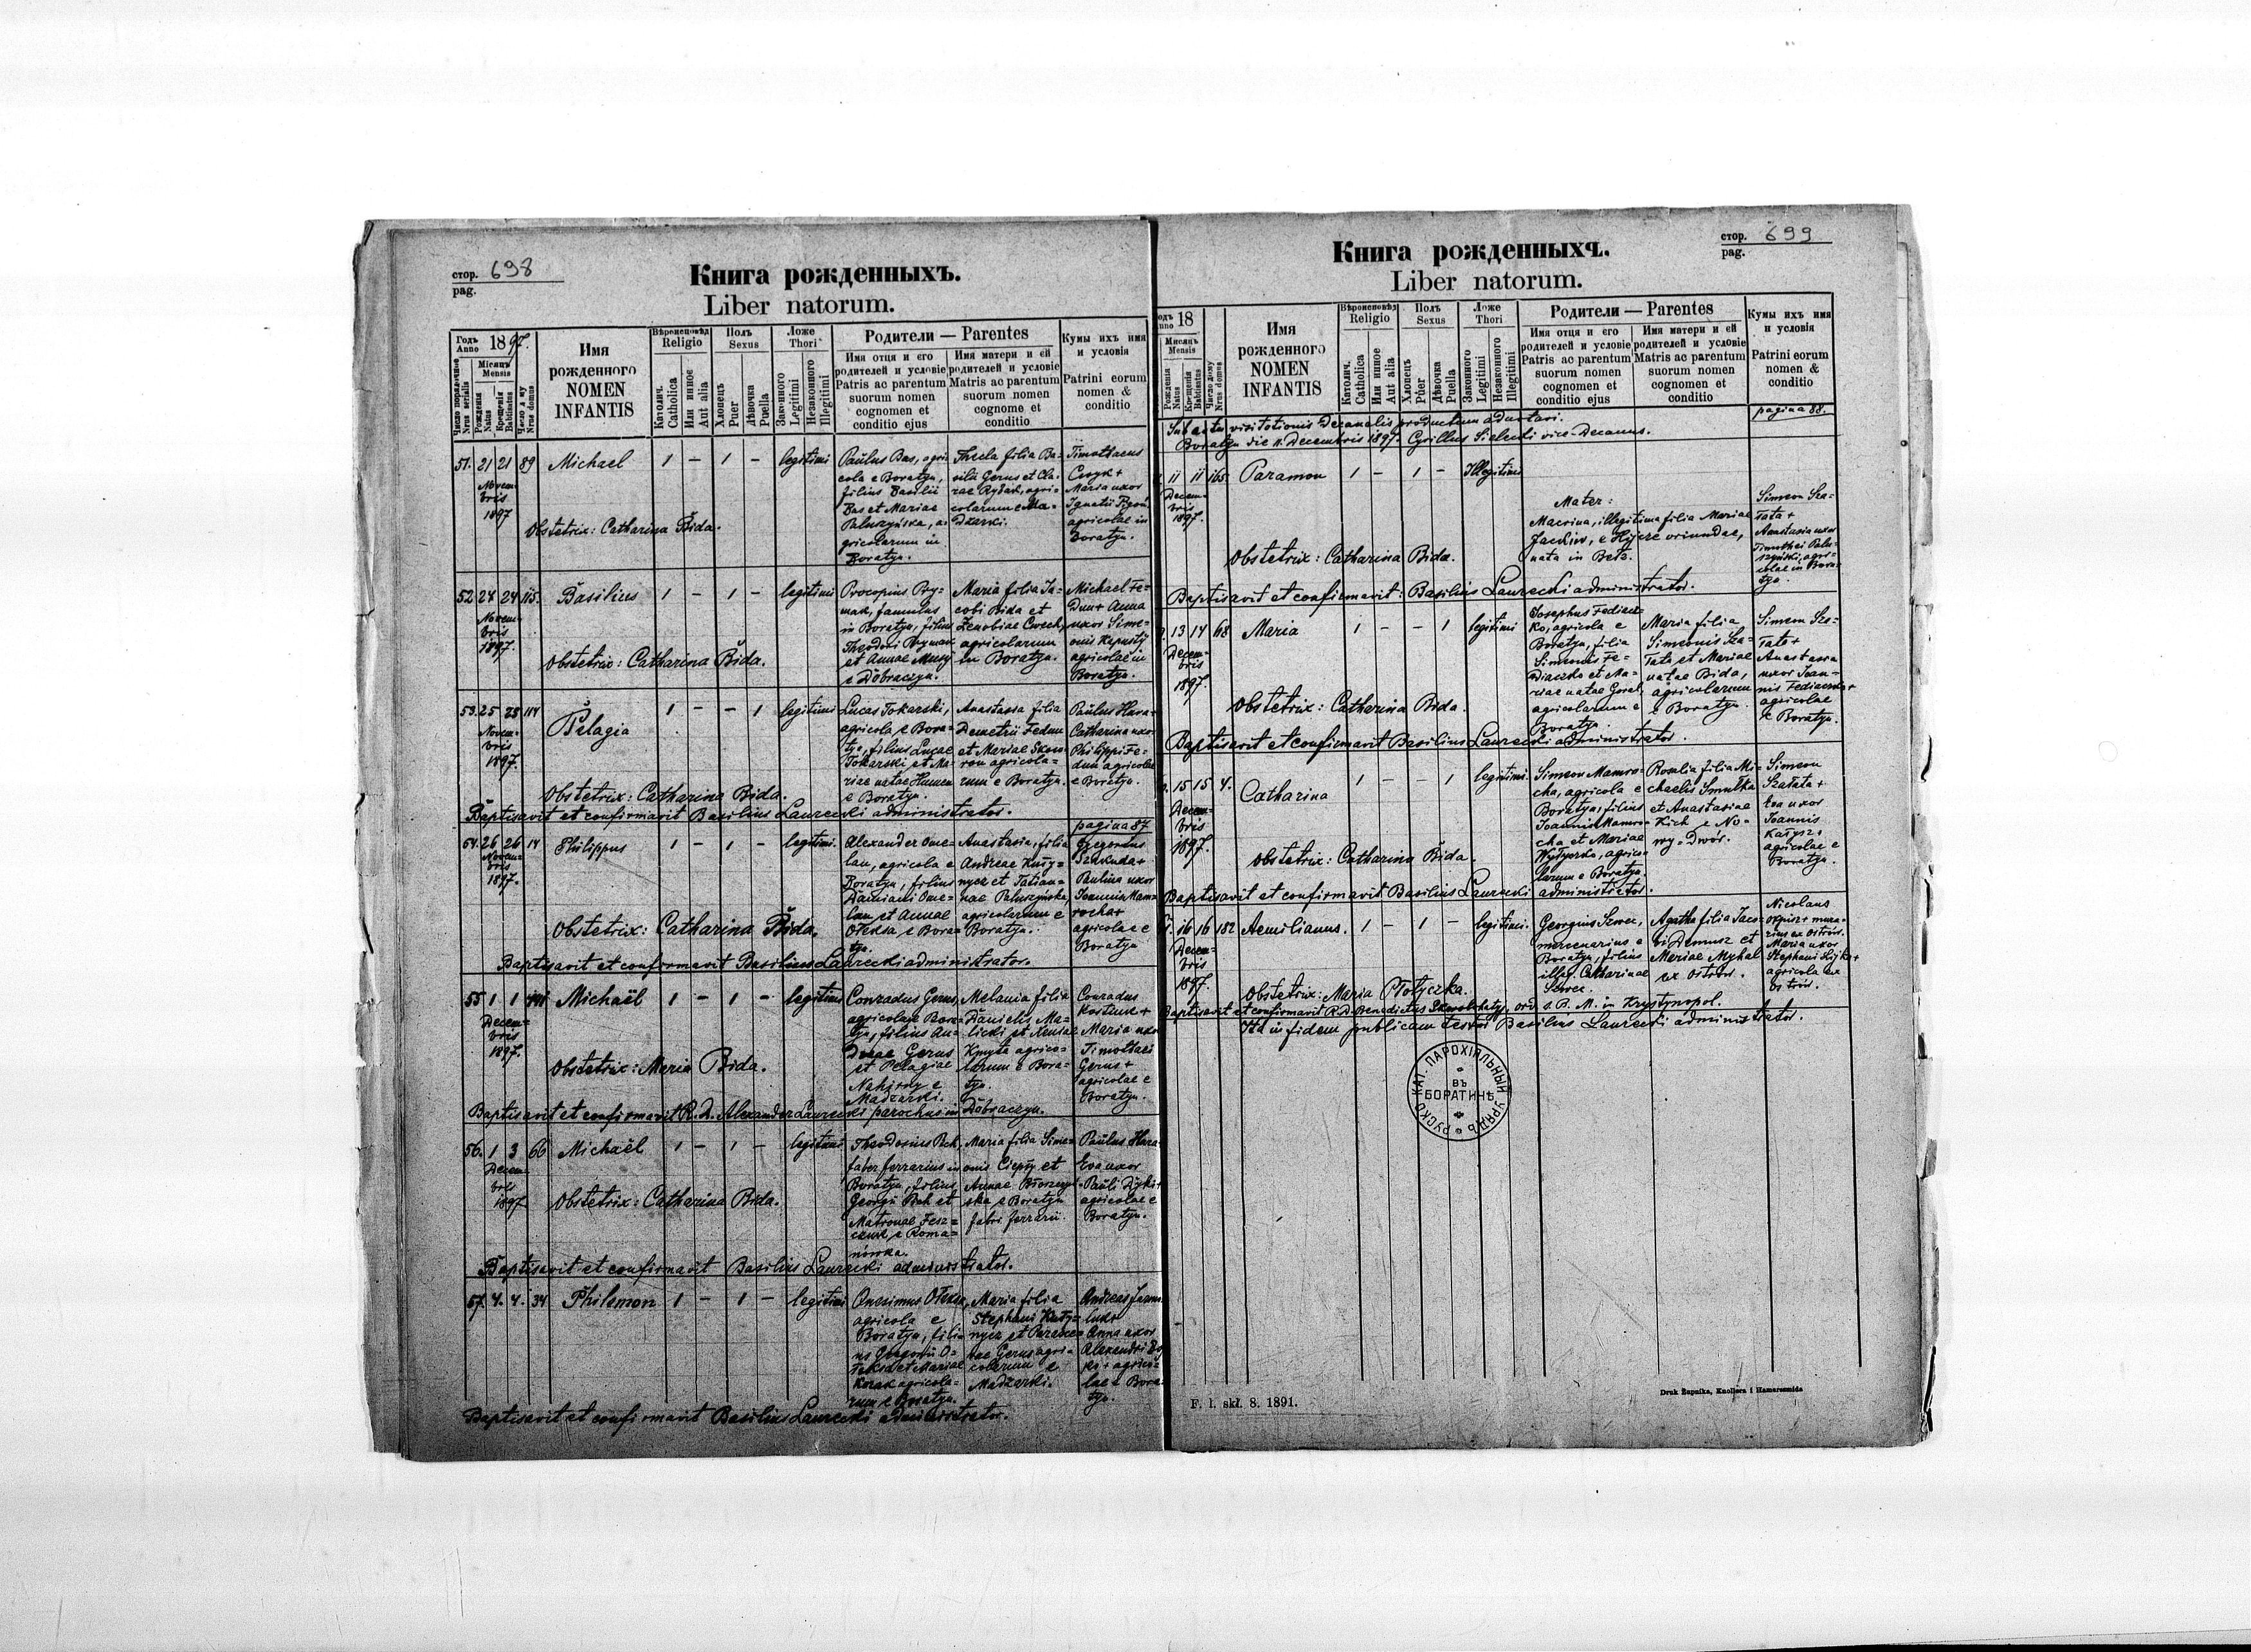 стор. 698
pag.
Книга рожденныхъ.
Liber natorum.
Годъ Anno 1897.
Число порядочное Nrus serialis
Мѣсяцъ Mensis
Рожденія Natus
Крещенія Babtisatus
Nrus domus
Имя рожденного NOMEN INFANTIS
Вѣроисповѣд Religio
Католич. Catholica
Или инное Aut alia
Полъ Sexus
Хлопецъ Puer
Дѣвочка Puella
Ложе Thori
Законного Legitimi
Незаконного Illegitimi
Родители — Parentes
Имя отця и его родителей и условіе
Patris ac parentum suorum nomen cognomen et conditio ejus
Имя матери и ей родителей и условіе
Matris ac parentum suorum nomen cognome et conditio
Кумы ихъ имя и условія
Patrini eorum nomen & conditio
51. 21 21 89 Michael 1 – 1 – legitimi
Novem-
bris
1897
Paulus Bas, agri-
cola e Boratyn,
filius Basilii
Bas et Mariae
Paluszyńska, a-
gricolarum in
Boratyn.
Thecla filia Ba-
silii Gerus et Cla-
rae Rybak, agri-
colarum e Ma-
dzarki.
Timotheus
Cwyk +
Maria uxor
Ignatii
agricolae in
Boratyn.
Obstetrix: Catharina Bida.
52 24 24 115. Basilius 1 – 1 – legitimi
Novem-
bris
1897.
Procopius Pry-
mak, famulus
in Boratyn, filius
Theodori Prymak
et Annae Musy
e Dobraczyn.
Maria filia Ja-
cobi Bida et
Zenobiae Cwech,
agricolarum
in Boratyn.
Michael Fe-
dun + Anna
uxor Sime-
onis Kapusty
agricolae in
Boratyn.
Obstetrix: Catharina Bida.
53. 25 28 114 Pelagia 1 – – 1 legitimi
Novem-
bris
1897.
Lucas Tokarski,
agricola e Bora-
tyn, filius Lucae
Tokarski et Ma-
riae natae Humen
e Boratyn.
Anastasia filia
Demetrii Fedun
et Mariae
agricola-
rum e Boratyn.
Paulus Hara +
Catharina uxor
Philippi Fe-
dun agricolae
e Boratyn.
Obstetrix: Catharina Bida.
Baptisavit et confirmavit Basilius Laurecki administrator.
pagina 87
54. 26 26 14 Philippus 1 – 1 – legitimi.
Novem-
bris
1897.
Alexander Ome-
lan, agricola e
Boratyn, filius
Damiani Ome-
lan et Annae
Ołeksa e Bora-
tyn.
Anastasia, filia
Andreae Kuły-
nycz et Tatian-
nae Paluszyńska,
agricolarum e
Boratyn.
Gregorius
Szakuda +
Paulina uxor
Joannis Mam-
rocha +
agricolae e
Boratyn
Obstetrix: Catharina Bida.
Baptisavit et confirmavit Basilius Laurecki administrator.
55 1 1 141 Michaël 1 – 1 – legitimi
Decem-
bris
1897.
Conradus Gerus,
agricola e Bora-
tyn, filius An-
dreae Gerus
et Pelagiae
Nahirny e
Madzarki.
Melania filia
Danielis Ma-
licki et Xeniae
Kmyta agrico-
larum e Bora-
tyn.
Conradus
Kostiuk +
Maria uxor
Timothaei
Gerus +
agricolae e
Boratyn.
Obstetrix: Maria Bida.
Baptisavit et confirmavit R.D. Alexander Laurecki parochus in Dobraczyn.
56. 1 3 66 Michaël 1 – 1 – legitimi
Decem-
bris
1897
Theodosius Bek,
faber ferrarius in
Boratyn, filius
Georgii Bek et
Matronae Fesz-
czuk e Roma-
nówka.
Maria filia Sime-
onis Ciepły et
Annae
e Boratyn
fabri ferrarii.
Paulus Hara
Eva uxor
Pauli Dyki +
agricolae e
Boratyn.
Obstetrix: Catharina Bida.
Baptisavit et confirmavit Basilius Laurecki administrator.
57. 4. 4. 34 Philemon 1 – 1 – legitimi
Onesimus Ołeksa,
agricola e
Boratyn, fili-
us Gregorii O-
łeksa et Mariae
Kozak agricola-
rum e Boratyn.
Maria filia
Stephani Kuły-
nycz et Parasce-
vae Gerus agri-
colarum e
Madzarki.
Andreas
Anna uxor
Alexandri
agrico-
lae e Bora-
tyn.
Baptisavit et confirmavit Basilius Laurecki administrator.
стор. 699
pag.
Книга рожденныхъ.
Liber natorum.
18
Мѣсяцъ Mensis
Рожденія Natus
Крещенія Babtisatus
Число дому Nrus domus
Имя рожденного NOMEN INFANTIS
Вѣроисповѣд Religio
Католич. Catholica
Или инное Aut alia
Полъ Sexus
Хлопецъ Puer
Дѣвочка Puella
Ложе Thori
Законного Legitimi
Незаконного Illegitimi
Родители — Parentes
Имя отця и его родителей и условіе
Patris ac parentum suorum nomen cognomen et conditio ejus
Имя матери и ей родителей и условіе
Matris ac parentum suorum nomen cognomen et conditio
Кумы ихъ имя и условія
Patrini eorum nomen & conditio
pagina 88.
Sub actu visitationis Decanalis productum adnotavi.
Boratyn die 11. Decembris 1897. Cyrillus Sielecki vice-Decanus.
11 11 165. Paramon 1 – 1 – Illegitimi
Decem-
bris
1897.
Mater:
Macrina, illegitima filia Mariae
Jackiw, e oriundae,
nata in Bełz.
Simeon Sza-
łata +
Anastasia uxor
Timothei Palu-
szyński, agri-
colae in Bora-
tyn.
Obstetrix: Catharina Bida.
Baptisavit et confirmavit: Basilius Laurecki administrator.
13 14 68 Maria 1 – – 1 legitimi
Decem-
bris
1897.
Josephus Fediacz-
ko, agricola e
Boratyn, filia
Simeonis Fe-
diaczko et Ma-
riae natae Goral
agricolarum e
Boratyn.
Maria filia
Simeonis Sza-
łata et Mariae
natae Bida,
agricolarum
e Boratyn.
Simeon Sza-
łata +
Anastasia
uxor Joan-
nis Fediaczko +
agricolae
e Boratyn.
Obstetrix: Catharina Bida.
Baptisavit et confirmavit Basilius Laurecki administrator.
15 15 4. Catharina 1 – – 1 legitimi.
Decem-
bris
1897.
Simeon Mamro-
cha, agricola e
Boratyn, filius
Joannis Mamro-
cha et Mariae
agrico-
larum e Boratyn.
Rosalia filia Mi-
chaelis Smułka
et Anastasiae
Kich e No-
wy-Dwór.
Simeon
Szałata +
Eva uxor
Joannis
Kałysz +
agricolae e
Boratyn.
Obstetrix: Catharina Bida.
Baptisavit et confirmavit Basilius Laurecki administrator.
16 16 182 Aemilianus. 1 – 1 – legitimi.
Decem-
bris
1897.
Georgius Szwec,
mercenarius e
Boratyn, filius
illeg. Catharinae
Szwec.
Agatha filia Jaco-
bi Demusz et
Mariae Myhal
ex Ostrów.
Nicolaus
mura-
rius ex Ostrów.
Maria uxor
Stephani
agricola ex
Ostrów.
Obstetrix: Maria Płotyczka.
Baptisavit et confirmavit R.D. Benedictus ord. s. B. M. in Krystynopol.
Ita in fidem publicam testor Basilius Laurecki administrator.
РУСКО КАТ. ПАРОХІЯЛЬНЫЙ УРЯДЪ
ВЪ
БОРАТИНѢ
F. l. skł. 8. 1891.
Druk Żupnika, Knollera i Hamerszmida